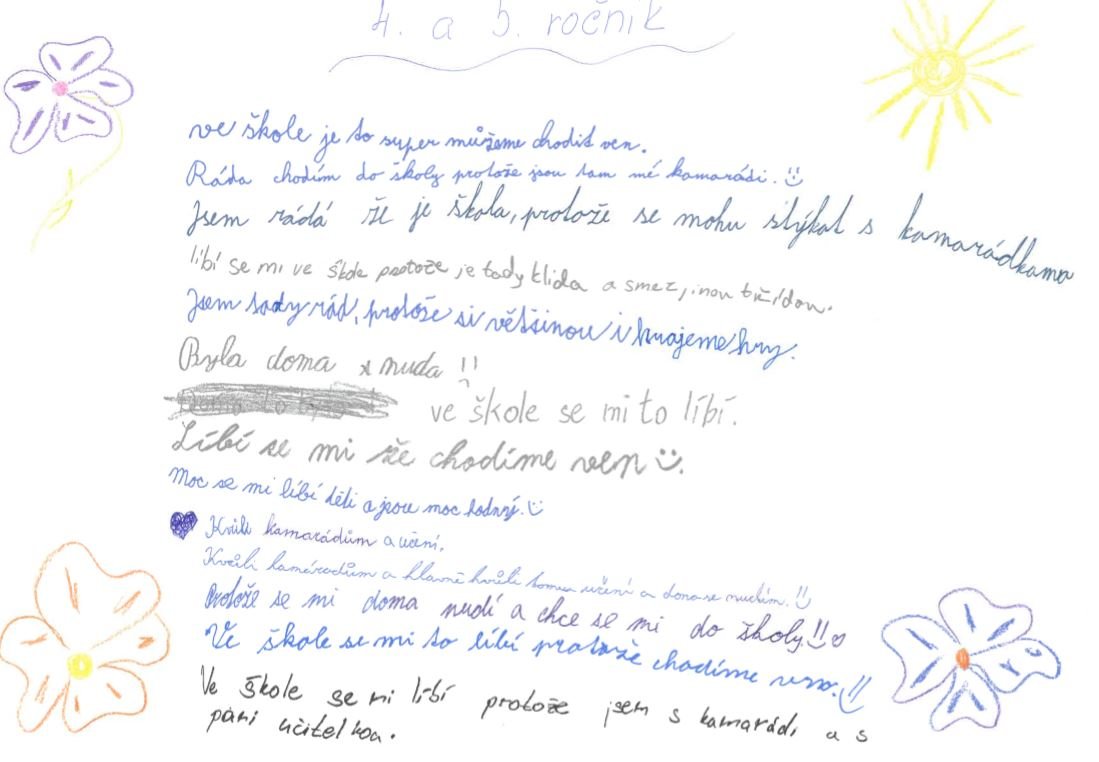 4. a 5. ročník
ve škole je to super můžeme chodit ven.
Ráda chodím do školy protože jsou tam mé kamarádi.
Jsem rádá že je škola, protože se mohu stýkat s kamarádkama
líbí se mi ve škole protože je tady klida a smez jinou třídou.
Jsem tady rád, protože si většinou i hrajeme hry.
Byla doma nuda !!
ve škole se mi to líbí.
Líbí se mi že chodíme ven
Moc se mi líbí děti a jsou moc hodný.
Kvůli kamarádům a učení.
Kvůli kamarádům a hlavně kvůli tomu učení a doma se nudím. !!
Protože se mi doma nudí a chce se mi do školy!!
Ve škole se mi to líbí protože chodíme ven. !!
Ve škole se mi líbí protože jsem s kamarádi a s
pani učitelkou.